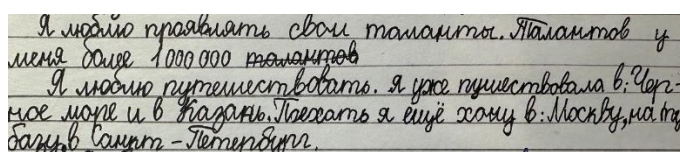 Я люблю проявлять свои таланты. Талантов у
меня более 1000 000 талантов
Я люблю путешествовать. я уже пушествовала в: Чер-
ное море и в Казань. Поехать я ещё хочу в: Москву, на
базу, в Санкт - Петербург.